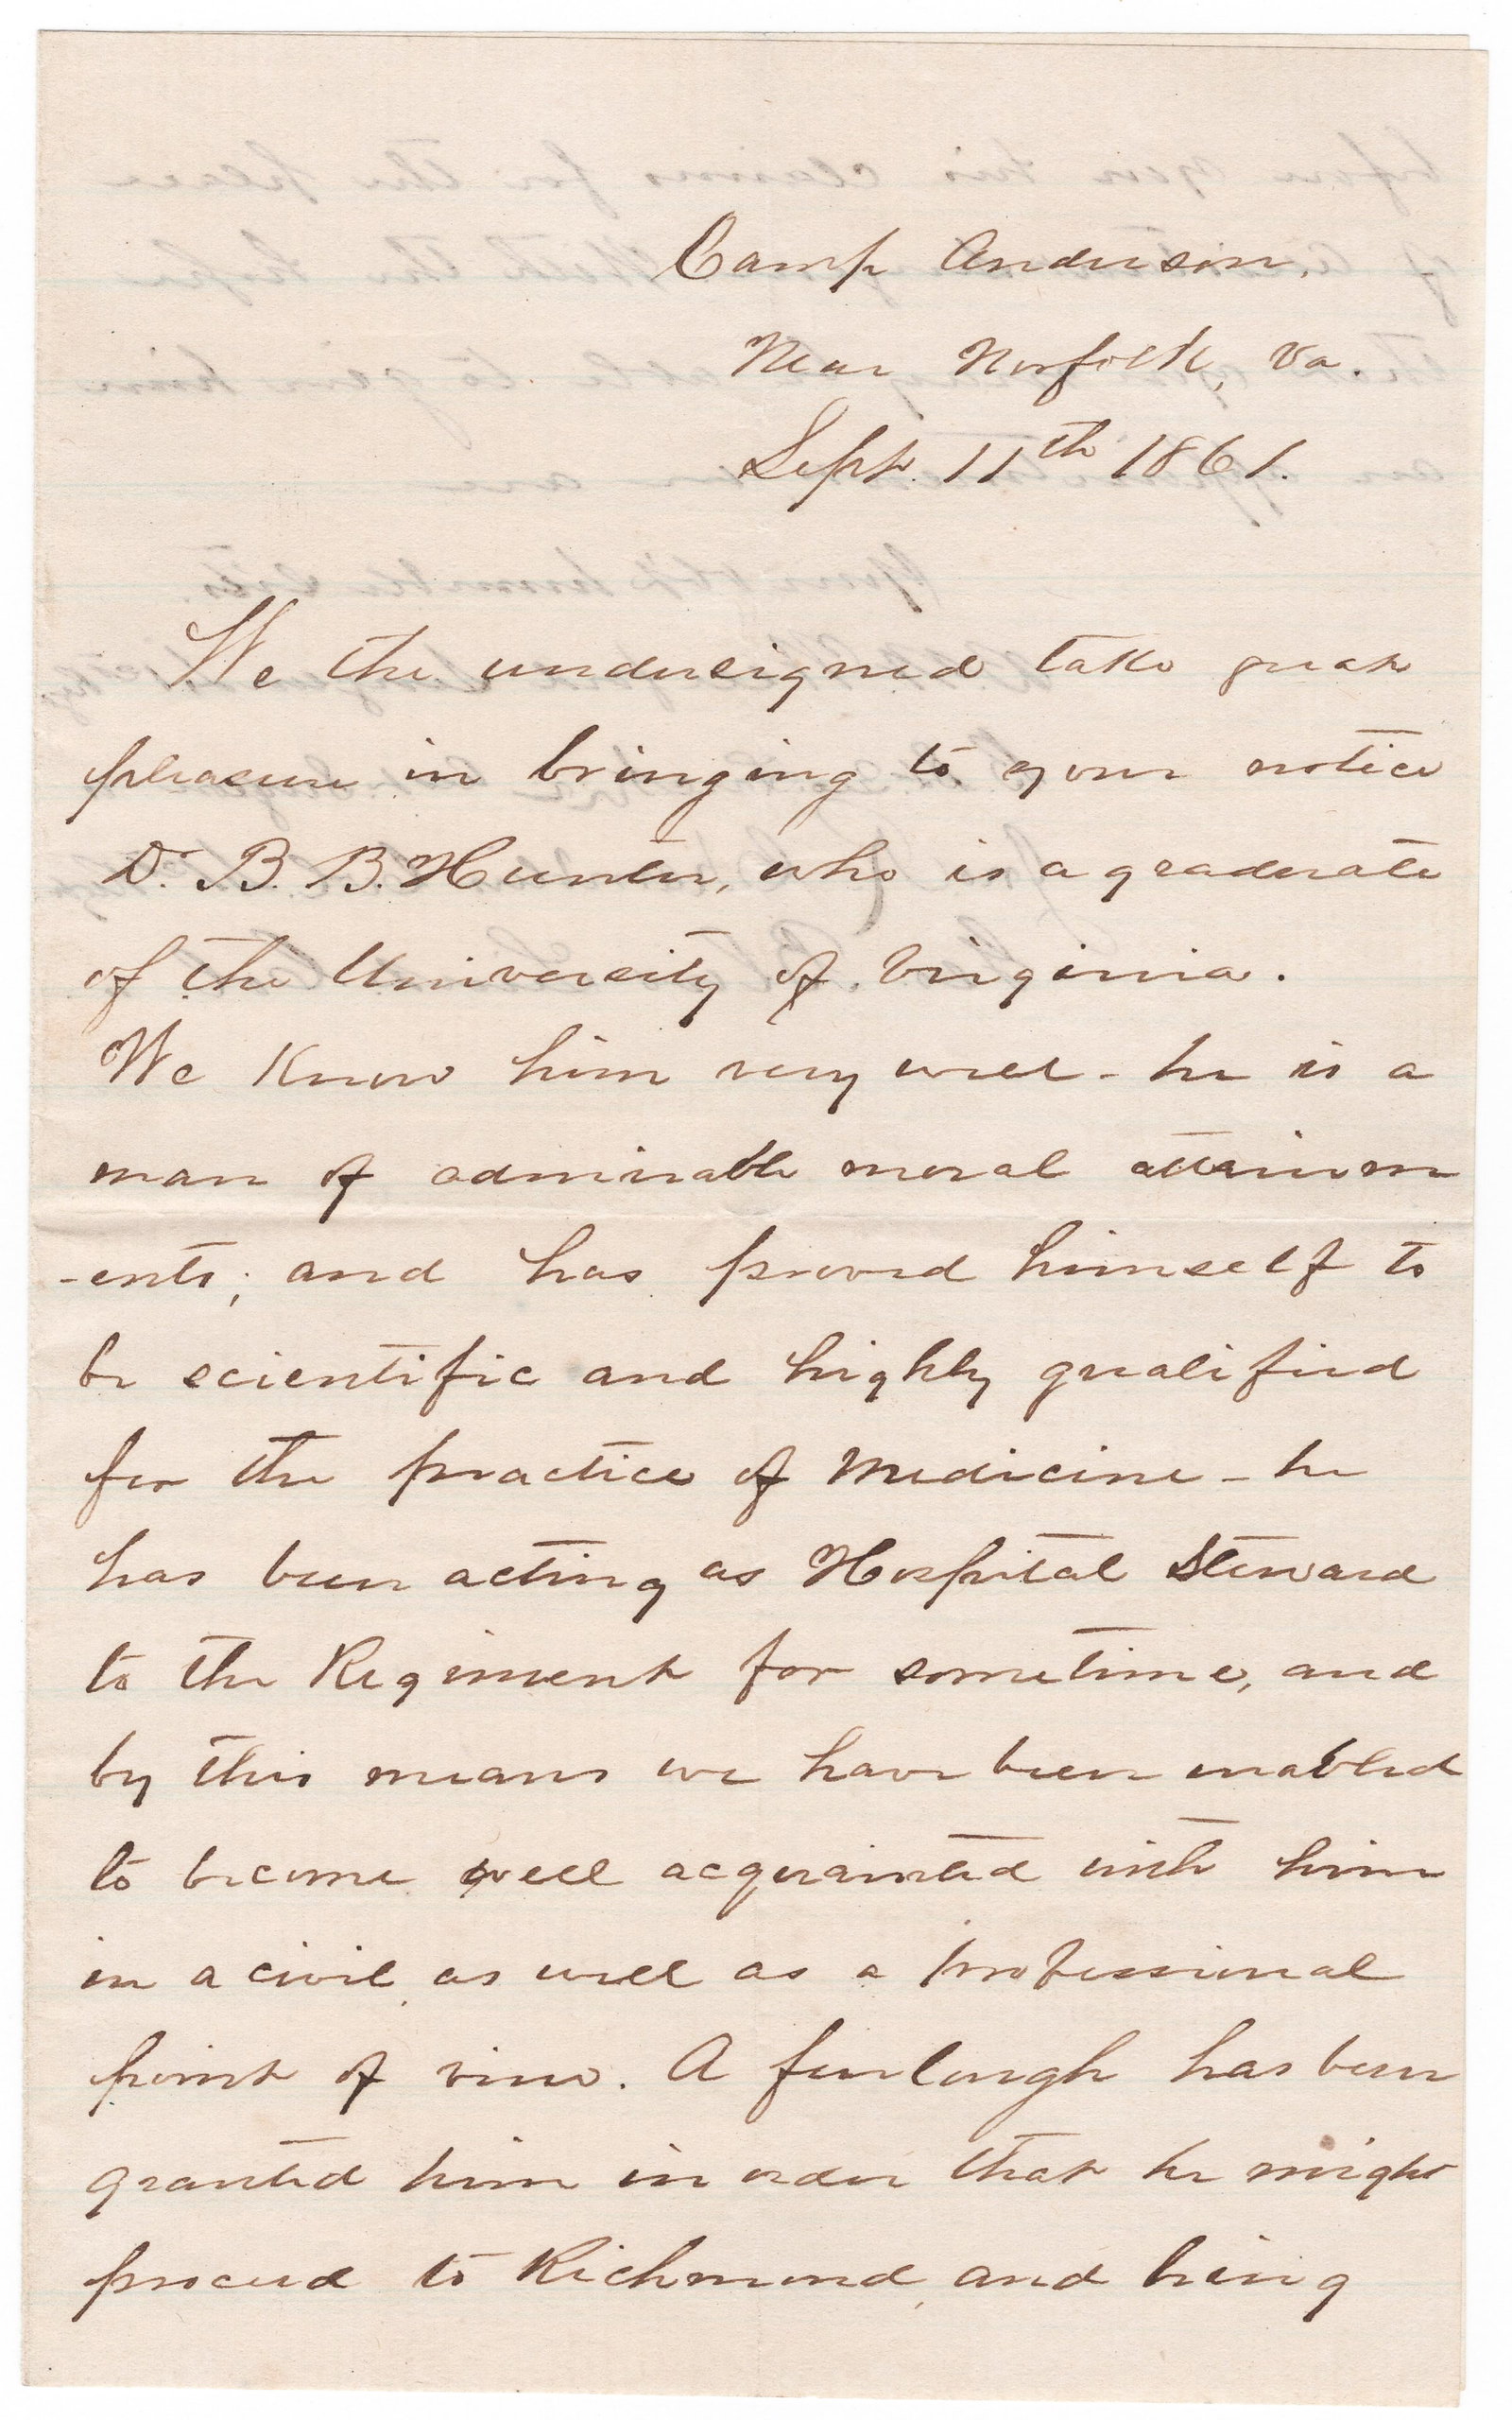 Camp Anderson,
Near Norfolk, Va.
Sept. 11th 1861.
We the undersigned take great
pleasure in bringing to your notice
Dr. B. B. Hunter, who is a graduate
of the University of Virginia.
We Know him very well - he is a
man of admirable moral attainm
-ents; and has proved himself to
be scientific and highly qualified
for the practice of Medicine - he
has been acting as Hospital Steward
to the Regiment for sometime, and
by this means we have been enabled
to become well acquainted with him
in a civil as well as a professional
point of view. A furlough has been
granted him in order that he might
proceed to Richmond, and bring